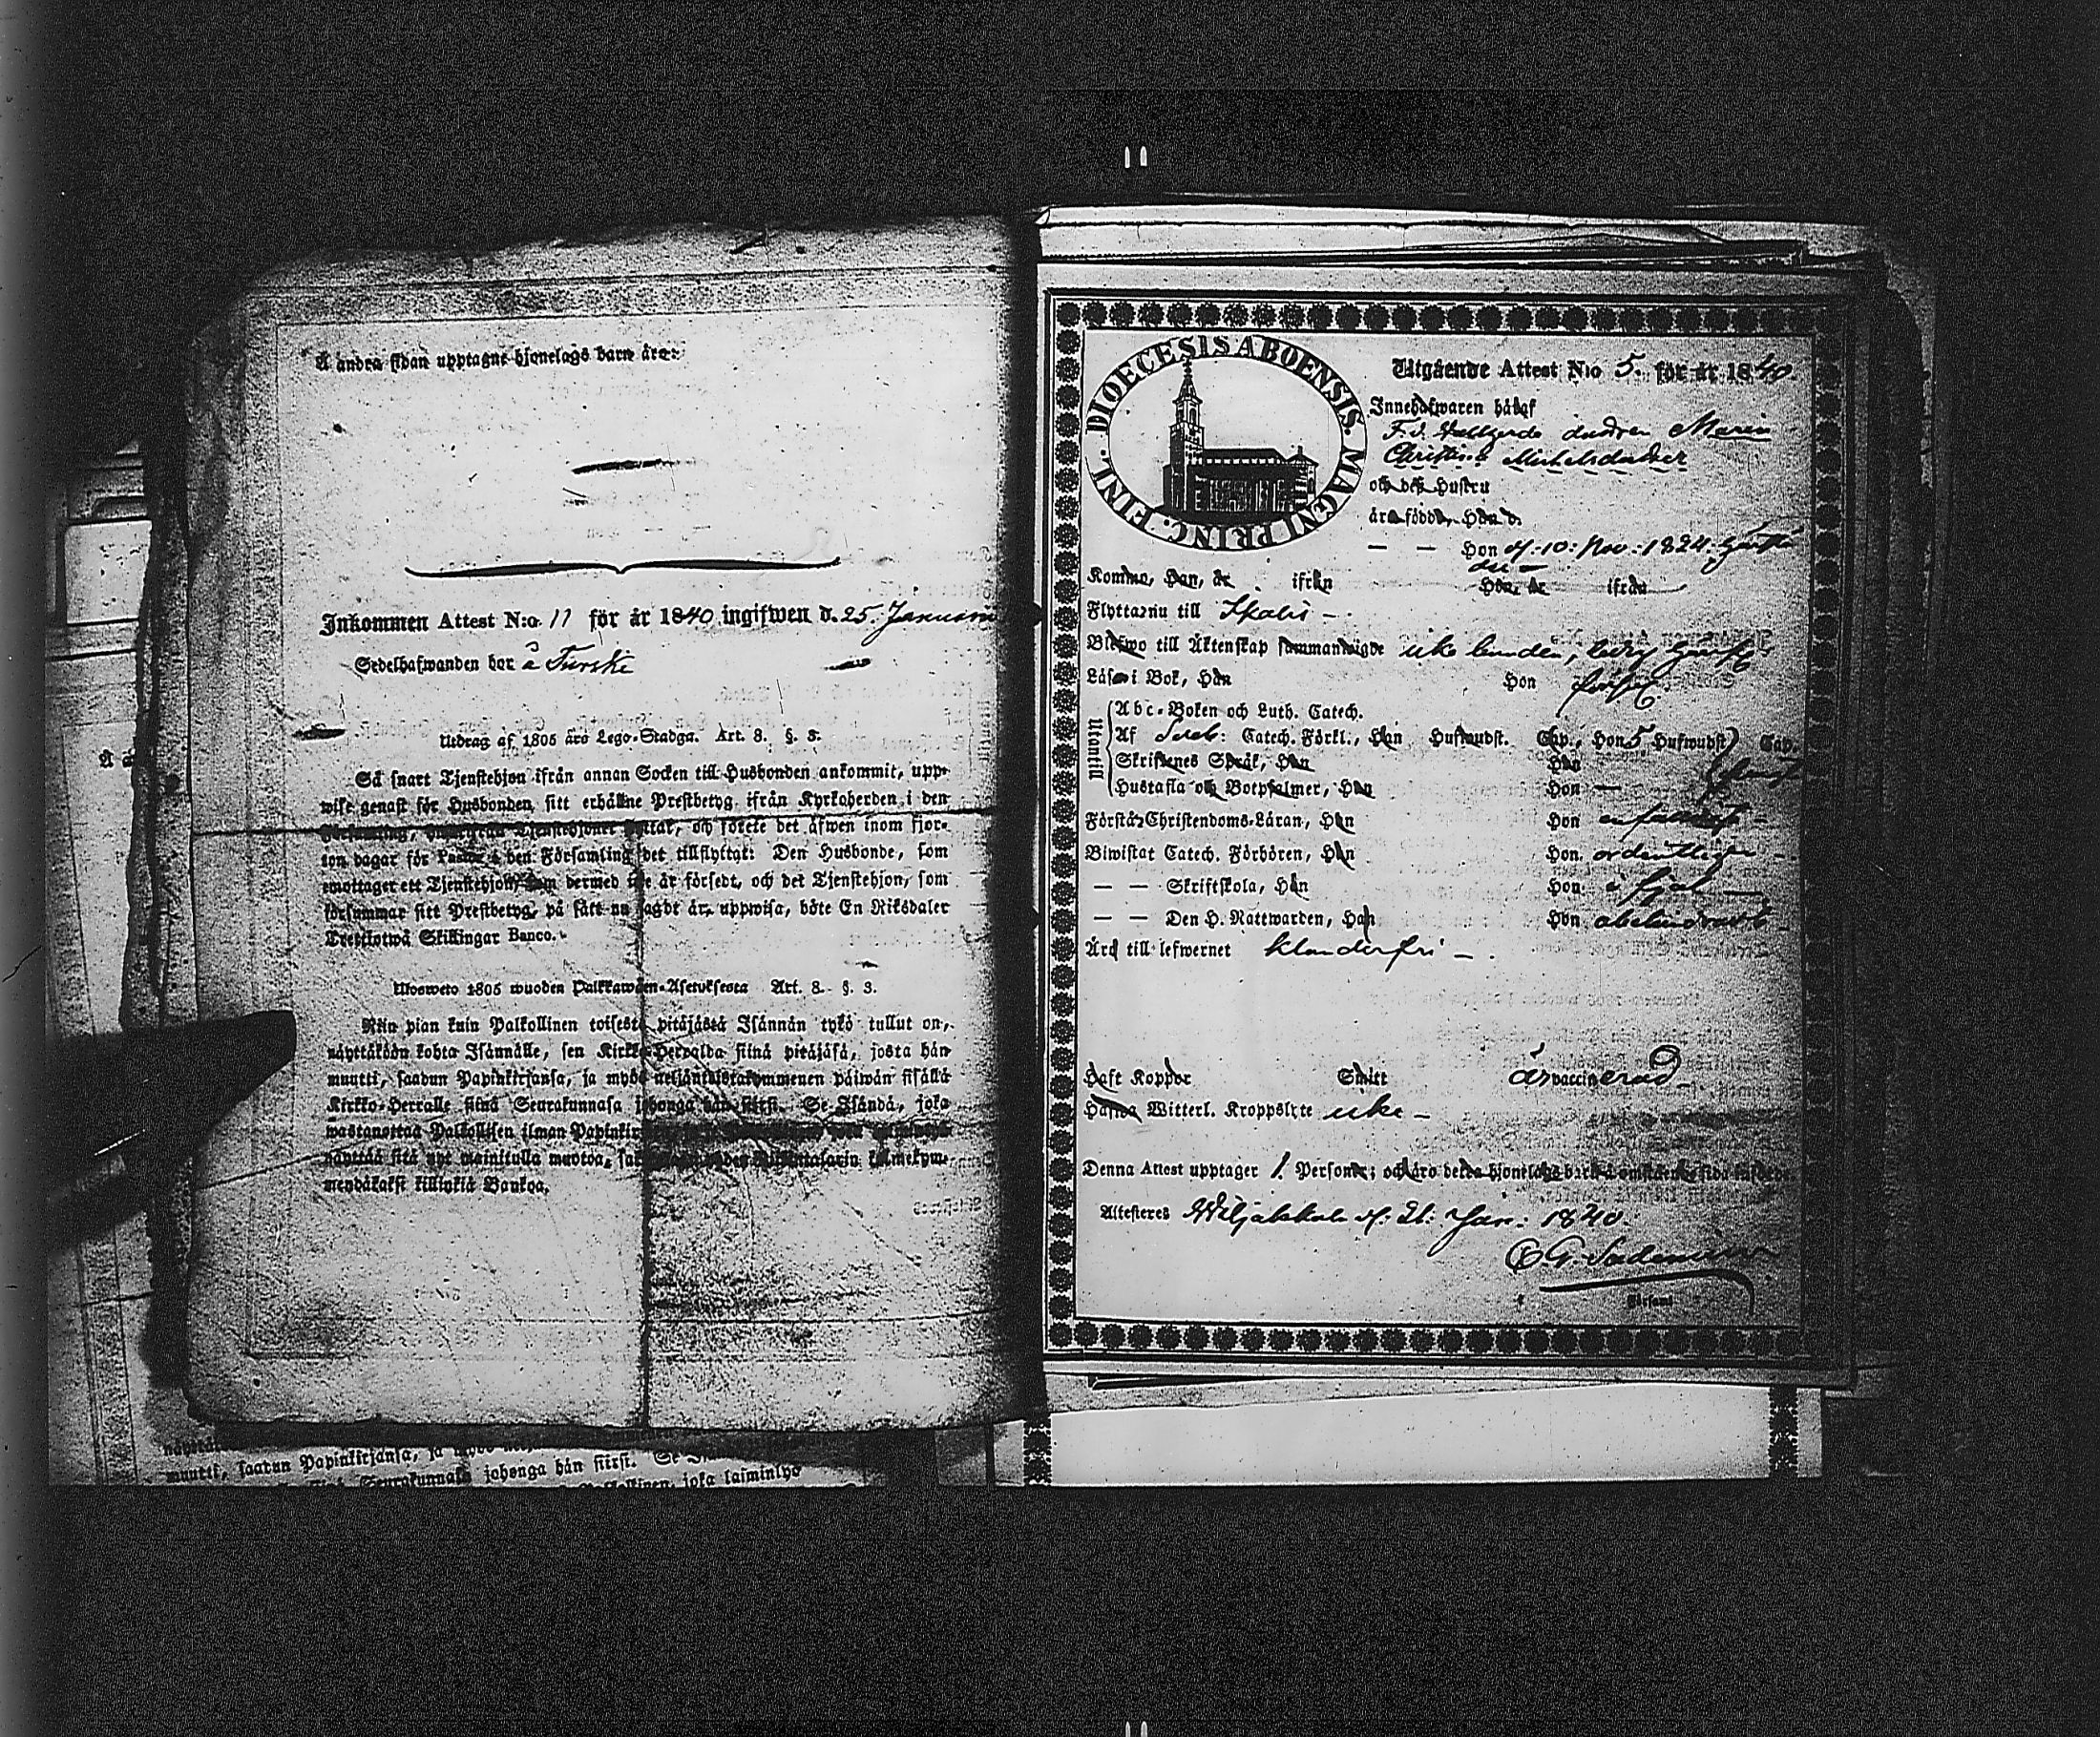 Å andra sidan upptagne hjonelags barn äro:
Inkommen Attest N:o 11 för år 1840 ingifwen d. 25. Januarii
Sedelhafwanden bor å Turski
Utdrag af 1805 års Lego-Stadga. Art. 8. §. 3.
Så snart Tjenstehjon ifrån annan Socken till Husbonden ankommit, upp-
wise genast för Husbonden sitt erhållne Prestbetyg ifrån Kyrkoherden i den
Församling, Tjenstehjonet flyttat, och förete det äfwen inom fjor-
ton dagar för Pastor i den Församling det tillflyttat: Den Husbonde, som
emottager ett Tjenstehjon, som dermed icke är försedt, och det Tjenstehjon, som
försummar sitt Prestbetyg, på sätt nu sagdt är, uppwisa, böte En Riksdaler
Trettiotwå Skillingar Banco.
Ulosweto 1805 wuoden Palkkawäen-Asetuksesta Art. 8. §. 3.
Niin pian kuin Palkollinen toisesta pitäjästä Isännän tykö tullut on,
näyttäköön kohta Isännälle, sen Kirkko-Herralda siinä pitäjäsä, josta hän
muutti, saadun Papinkirjansa, ja myös neljäntoistakymmenen päiwän sisällä
Kirkko-Herralle siinä Seurakunnasa johonga hän siirsi. Se Isändä, joka
wastanottaa Palkollisen ilman Papinkir
näyttää sitä nyt mainitulla muotoa, kolmekym-
mendäkaksi killinkiä Bankoa.
muutti, saadun Papinkirjansa, ja myös
Seurakunnasa johonga hän siirsi. Se
joka laiminlyö
DIOECESIS ABOENSIS. MAGNI PRINC. FINL.
Utgående Attest N:o 5. för år 1840.
Innehafwaren häraf
F. d. dottren Maria
Christina Michelsdotter
och dess Hustru
äro födde, Han d.
— — Hon d. 10. Nov. 1824.
Komne, Han, är ifrån Hon, är ifrån
Flyttar nu till Ikalis —
Blefwo till Äktenskap sammanwigde icke bunden, ledig
Läser i Bok, Han Hon
Utantill
Abc-Boken och Luth. Catech.
Af Sveb: Catech. Förkl., Han Hufwudst. Cap., Hon 5 Hufwudst. Cap.
Skriftenes Språk, Han Hon
Hustafla och Botpsalmer, Han Hon —
Förstår Christendoms-Läran, Han Hon
Biwistat Catech. Förhören, Han Hon ordentligen —
— — Skriftskola, Han Hon i fjol —
— — Den H. Nattwarden, Han Hon
Ärd till lefwernet klanderfri —
Haft Koppor Smitt är vaccinerad
Hafwa Witterl. Kroppslyte icke —
Denna Attest upptager 1. Personer; och äro detta hjonelags barn å omstående sida införde
Attesteres Wiljakkala d. 21. Jan: 1840.